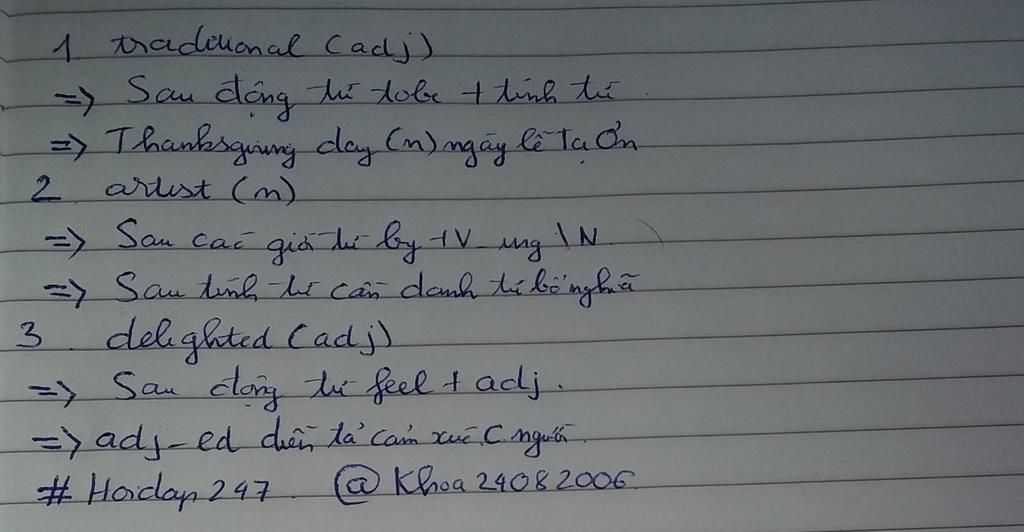 1 traditional (adj)
=> Sau động từ tobe + tính từ
=> Thanksgiving day (n) ngày lễ Tạ Ơn
2 artist (n)
=> Sau các giới từ by + V_ing \ N
=> Sau tính từ cần danh từ bổ nghĩa
3. delighted (adj)
=> Sau động từ feel + adj.
=> adj-ed diễn tả cảm xúc C người
# Hoidap247. @ Khoa24082006